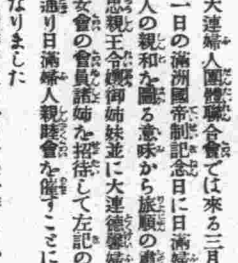 大連婦人團體聯合會では來る三月
一日の滿洲國帝制記念日に日滿婦
人の親和を圖る意味から旅順の肅
忠親王令孃御姉妹並に大連德馨婦
女會の會員諸姉を招待して左記の
通り日滿婦人親睦會を催すことに
なりました